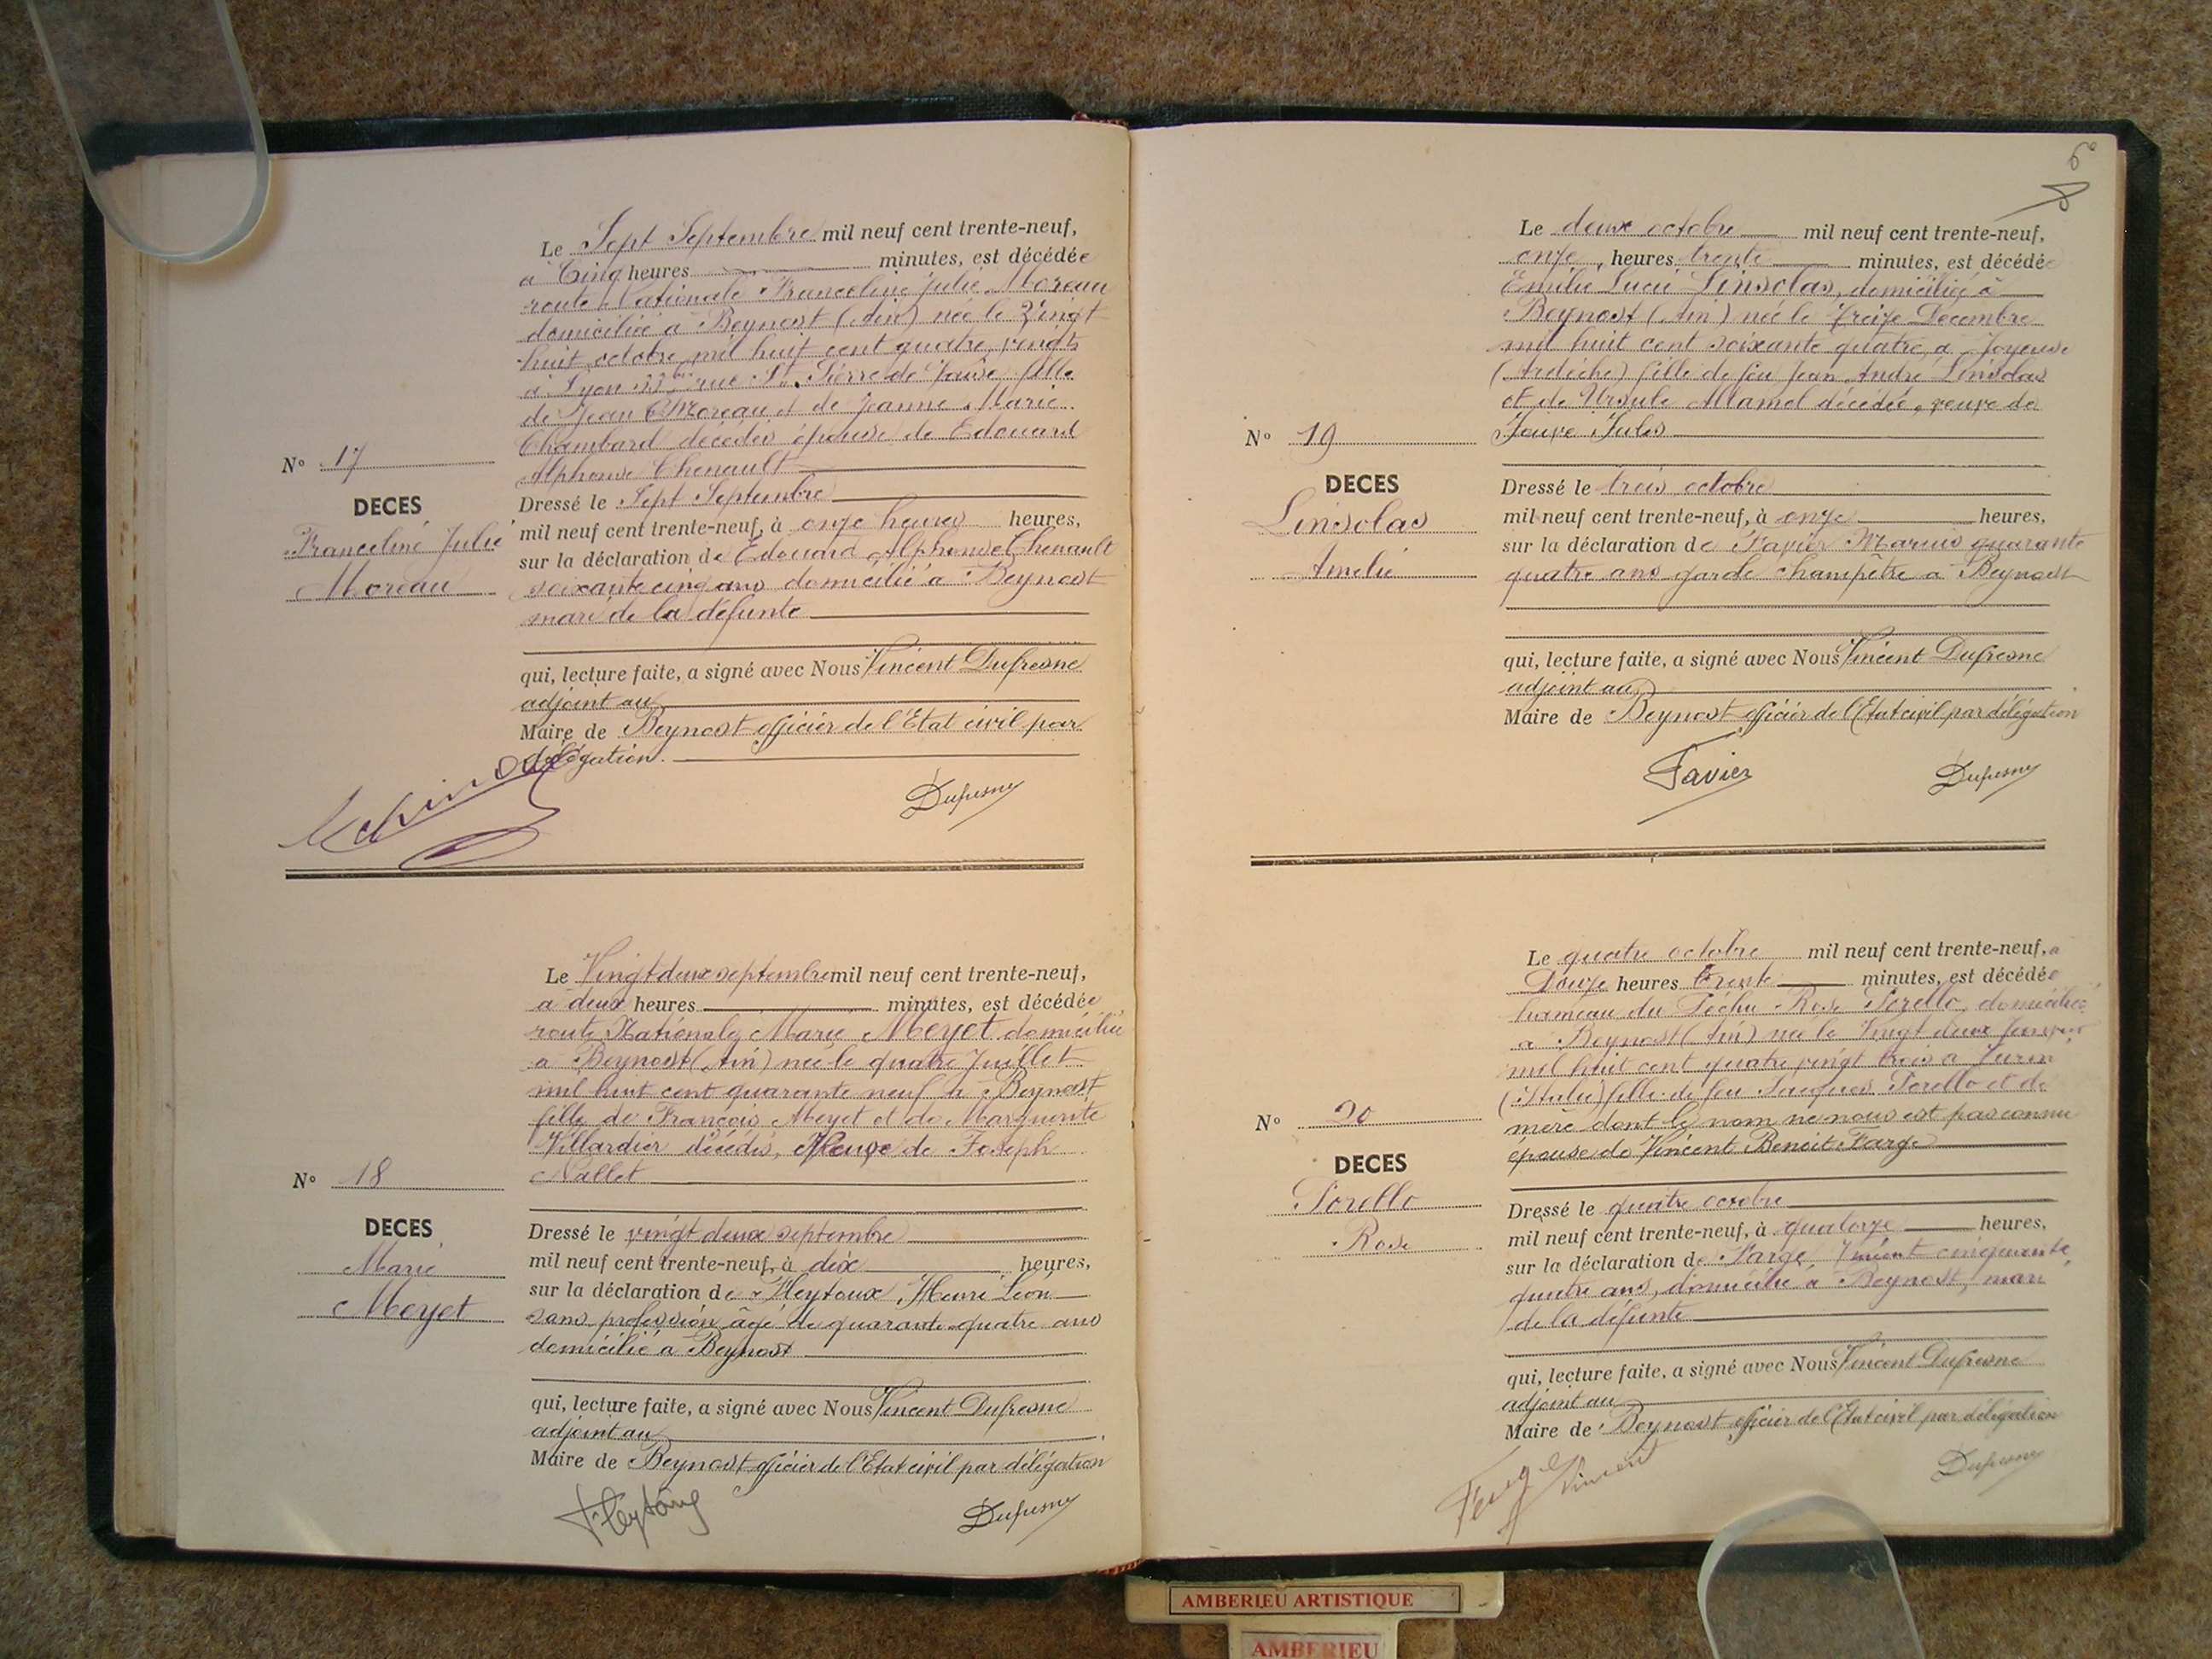 Le Sept Septembre mil neuf cent trente-neuf,
à Cinq heures minutes, est décédée
route Nationale Franceline Julie Moreau
domiciliée à Beynost (Ain) née le Vingt
huit octobre mil huit cent quatre vingts
à Lyon 33 bis rue St Pierre de Vaise fille
de Jean Moreau et de Jeanne Marie
Chambard décédés épouse de Edouard
Alphonse Chenault
N° 17
DECES
Franceline Julie
Moreau
Dressé le Sept Septembre
mil neuf cent trente-neuf, à onze heures heures,
sur la déclaration de Edouard Alphonse Chenault
soixante cinq ans domicilié à Beynost
mari de la défunte
qui, lecture faite, a signé avec Nous Vincent Dufresne
adjoint au
Maire de Beynost officier de l'Etat civil par
délégation.
Dufresne
Le Vingt deux septembre mil neuf cent trente-neuf,
à deux heures minutes, est décédée
route Nationale Marie Meyet domiciliée
à Beynost (Ain) née le quatre Juillet
mil huit cent quarante neuf à Beynost
fille de François Meyet et de Marguerite
Villardier décédés, Veuve de Joseph
Nallet
N° 18
DECES
Marie
Meyet
Dressé le vingt deux septembre
mil neuf cent trente-neuf, à dix heures,
sur la déclaration de Heytoux Henri Léon
sans profession âgé de quarante-quatre ans
domicilié à Beynost
qui, lecture faite, a signé avec Nous Vincent Dufresne
adjoint au
Maire de Beynost officier de l'Etat civil par délégation
Dufresne
6
Le deux octobre mil neuf cent trente-neuf,
onze heures trente minutes, est décédée
Emilie Lucie Linsolas, domiciliée à
Beynost (Ain) née le treize Décembre
mil huit cent soixante quatre à Joyeuse
(Ardèche) fille de feu Jean André Linsolas
et de Ursule Mamel décédée, veuve de
Jouve Jules
N° 19
DECES
Linsolas
Amélie
Dressé le trois octobre
mil neuf cent trente-neuf, à onze heures,
sur la déclaration de Favier Marius quarante
quatre ans garde champêtre à Beynost
qui, lecture faite, a signé avec Nous Vincent Dufresne
adjoint au
Maire de Beynost officier de l'Etat civil par délégation
Favier Dufresne
Le quatre octobre mil neuf cent trente-neuf, à
Douze heures trente minutes, est décédée
hameau du Péchu Rose Porello, domiciliée
à Beynost (Ain) née le Vingt deux Janvier
mil huit cent quatre vingt trois à Turin
(Italie) fille de feu Jacques Porello et de
mère dont le nom ne nous est pas connu
épouse de Vincent Benoit Farge
N° 20
DECES
Porello
Rose
Dressé le quatre octobre
mil neuf cent trente-neuf, à quatorze heures,
sur la déclaration de Farge Vincent cinquante
quatre ans, domicilié à Beynost, mari
de la défunte
qui, lecture faite, a signé avec Nous Vincent Dufresne
adjoint au
Maire de Beynost officier de l'Etat civil par délégation
Farge Vincent
Dufresne
AMBERIEU ARTISTIQUE
AMBERIEU